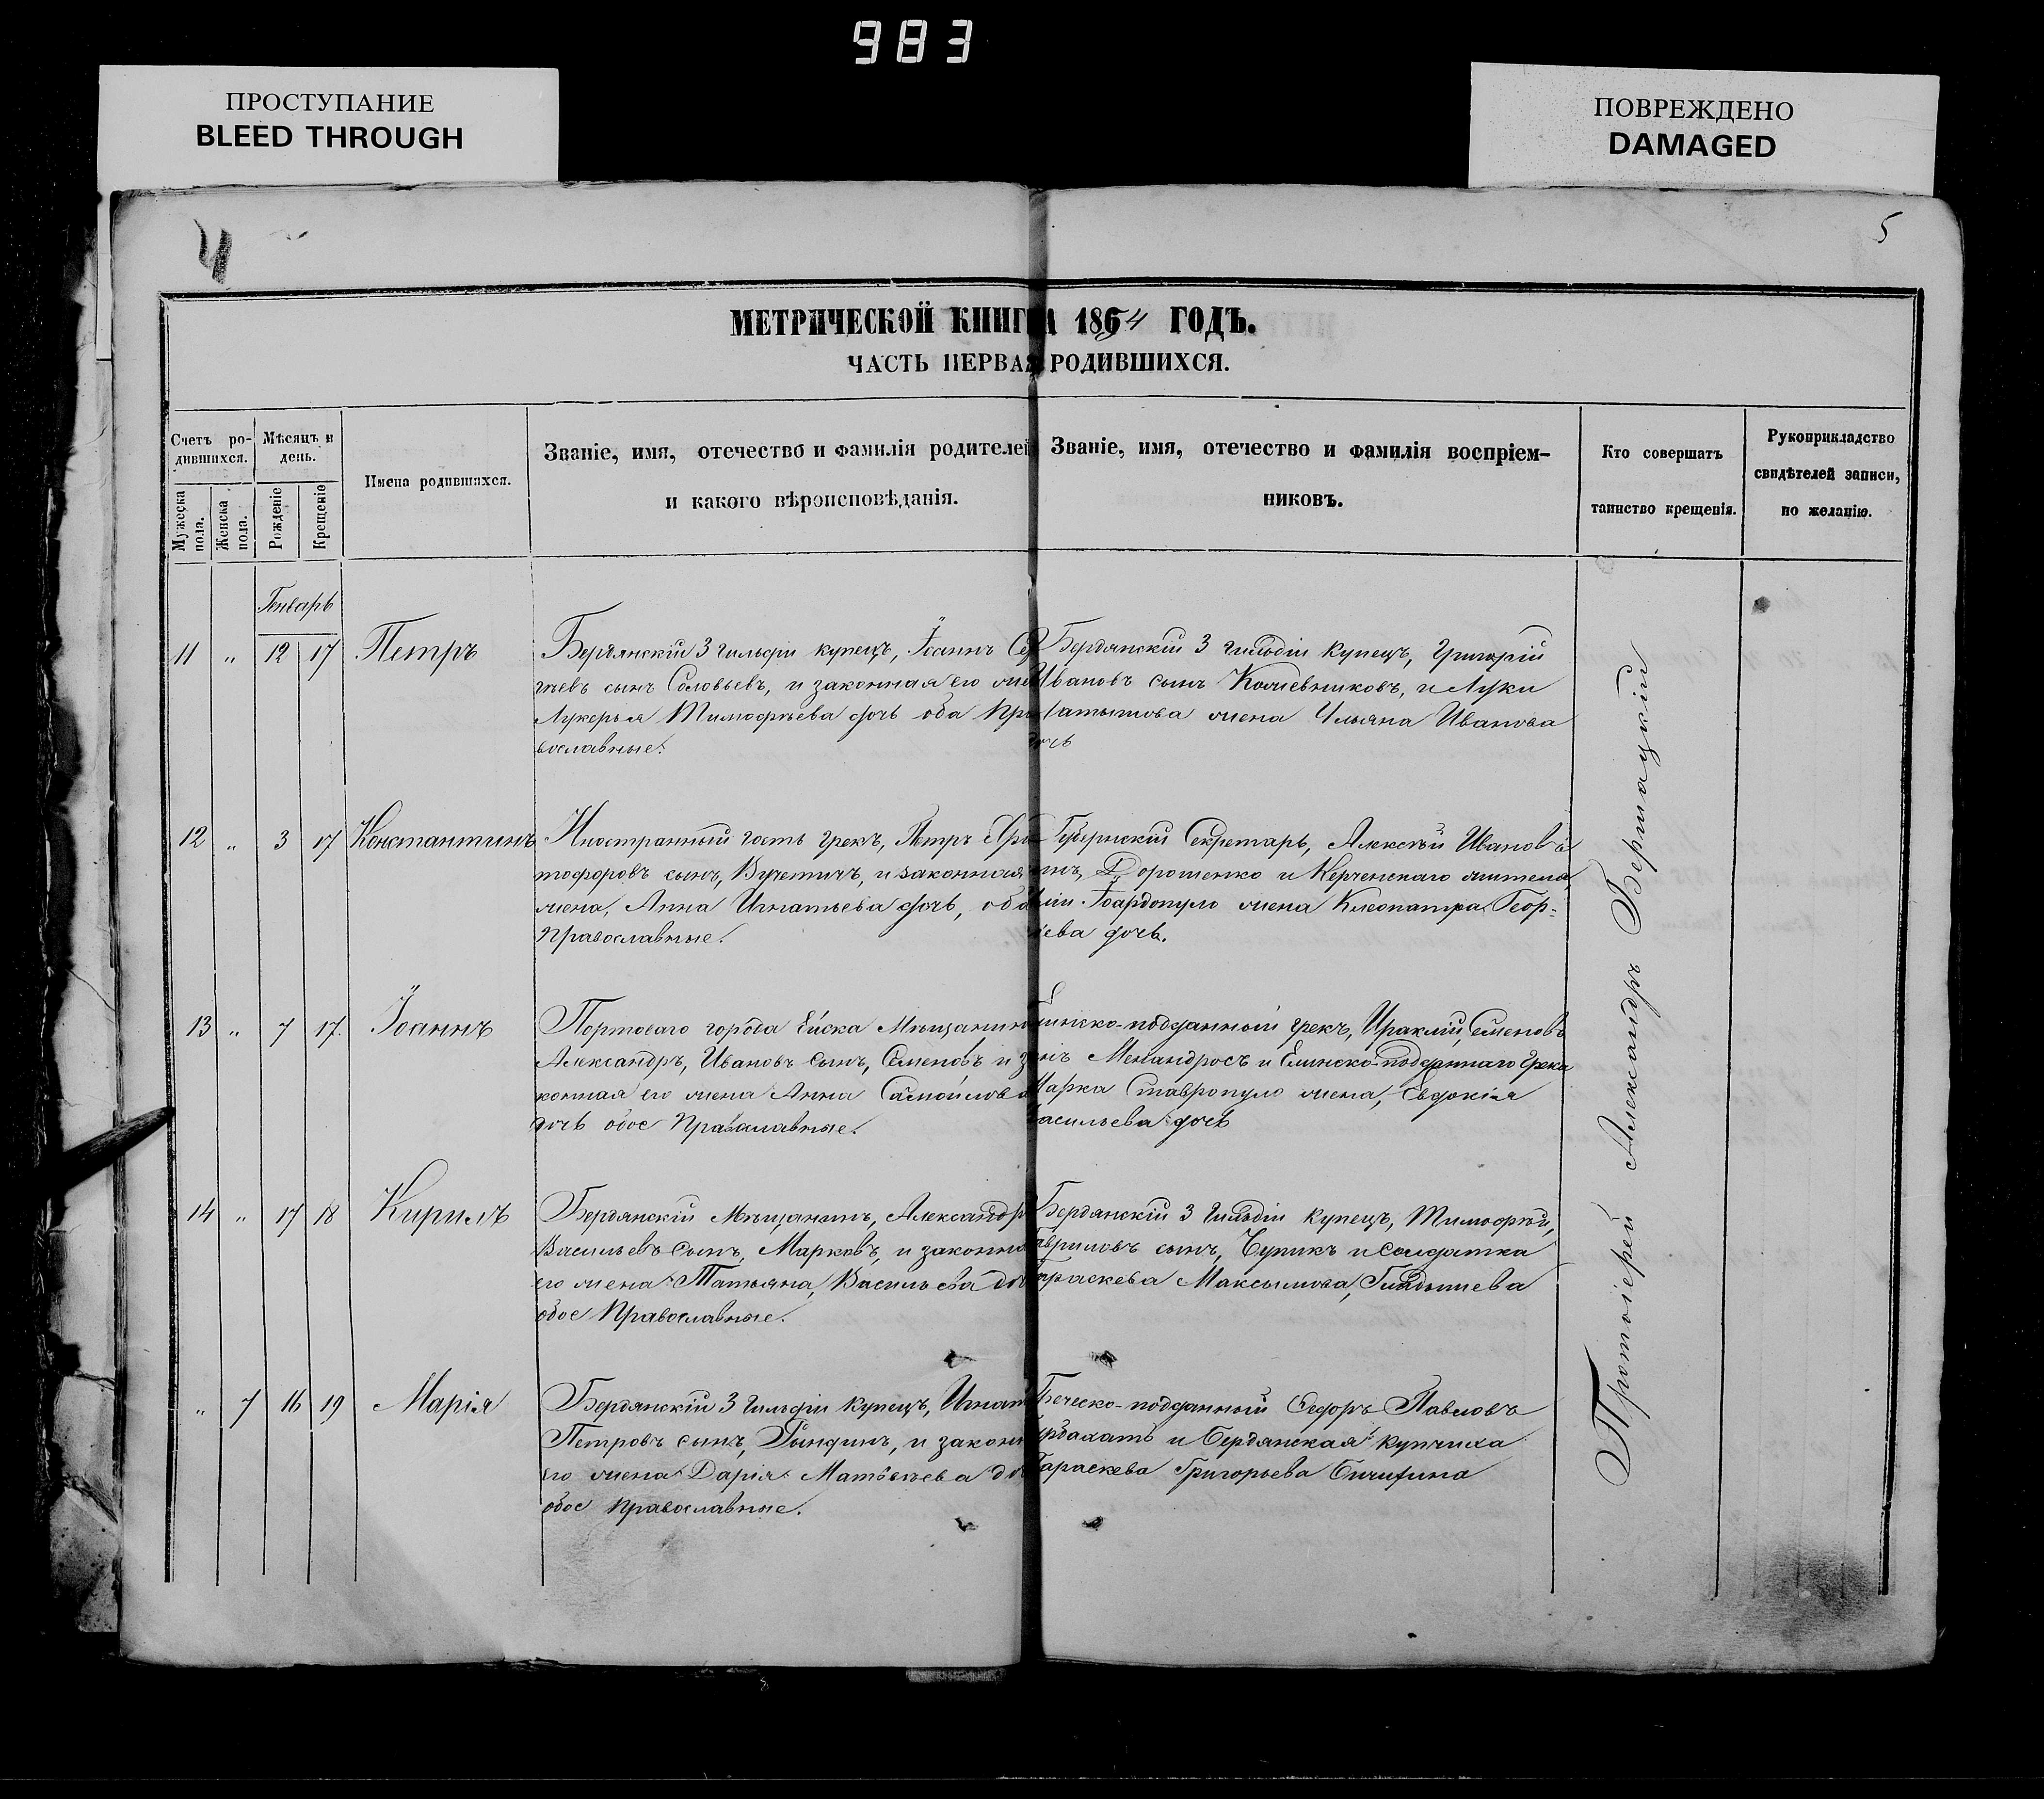 983
ПРОСТУПАНИЕ
BLEED THROUGH
ПОВРЕЖДЕНО
DAMAGED
4
5
МЕТРИЧЕСКОЙ КНИГ 1854 ГОДЪ.
ЧАСТЬ ПЕРВАЯ РОДИВШИХСЯ.
Счетъ ро-
дившихся.
Мужеска
пола.
Женска
пола.
Мѣсяцъ и
день.
Рожденіе
Крещеніе
Имена родившихся.
Званіе, имя, отечество и фамилія родителей
и какого вѣроисповѣданія.
Званіе, имя, отечество и фамилія воспріем-
никовъ.
Кто совершатъ
таинство крещенія.
Рукоприкладство
свидѣтелей записи,
по желанію.
Генварь
11 „ 12 17 Петръ
Бердянскій 3 гильдіи купецъ, Іоаннъ Сер
гѣевъ сынъ Соловьевъ, и законная его же
Лукерья Тимофѣева дочь оба Пра
вославные.
Бердянскій 3 гильдіи купецъ, Григорій
Ивановъ сынъ Кожевниковъ, и Луки
жена Ульяна Иванова
очь
12 „ 3 17 Константинъ
Иностранный гость грекъ, Петръ Хри
тофоровъ сынъ, Вучетичъ, и законная
жена, Анна Игнатьева дочь, оба
Православные.
Губернскій Секретарь, Алексѣй Ивановъ с
инъ, Дорошенко и Керченскаго жителя
жена Клеопатра Геор-
іева дочь.
13 „ 7 17. Іоаннъ
Портоваго города Ейска Мѣщанин
Александръ, Ивановъ сынъ, Семеновъ и за
конная его жена Анна Самойлова
дочь обое Православные.
линско-подданный грекъ, Ираклій, Семеновъ
Менандросъ и Елинско-подданнаго Грека
Марка Ставропуло жена, Евдокія
асильева дочь
14 „ 17 18 Кирилъ
Бердянскій Мѣщанинъ, Александр
Васильевъ сынъ, Марковъ, и законна
его жена Татьяна, Васильева до
обое Православные.
Бердянскій 3 гильдіи купецъ, Тимофѣй,
авриловъ сынъ, Чупикъ и Солдатка
праскева Максымова,
„ 7 16 19 Марія
Бердянскій 3 гильдіи купецъ, Игнат
Петровъ сынъ, и закон
его жена Дарія Матвѣева до
обое православные.
подданный Федоръ Павловъ
и Бердянская купчиха
Параскева Григорьева
Протоіерей Александръ Бершацкій